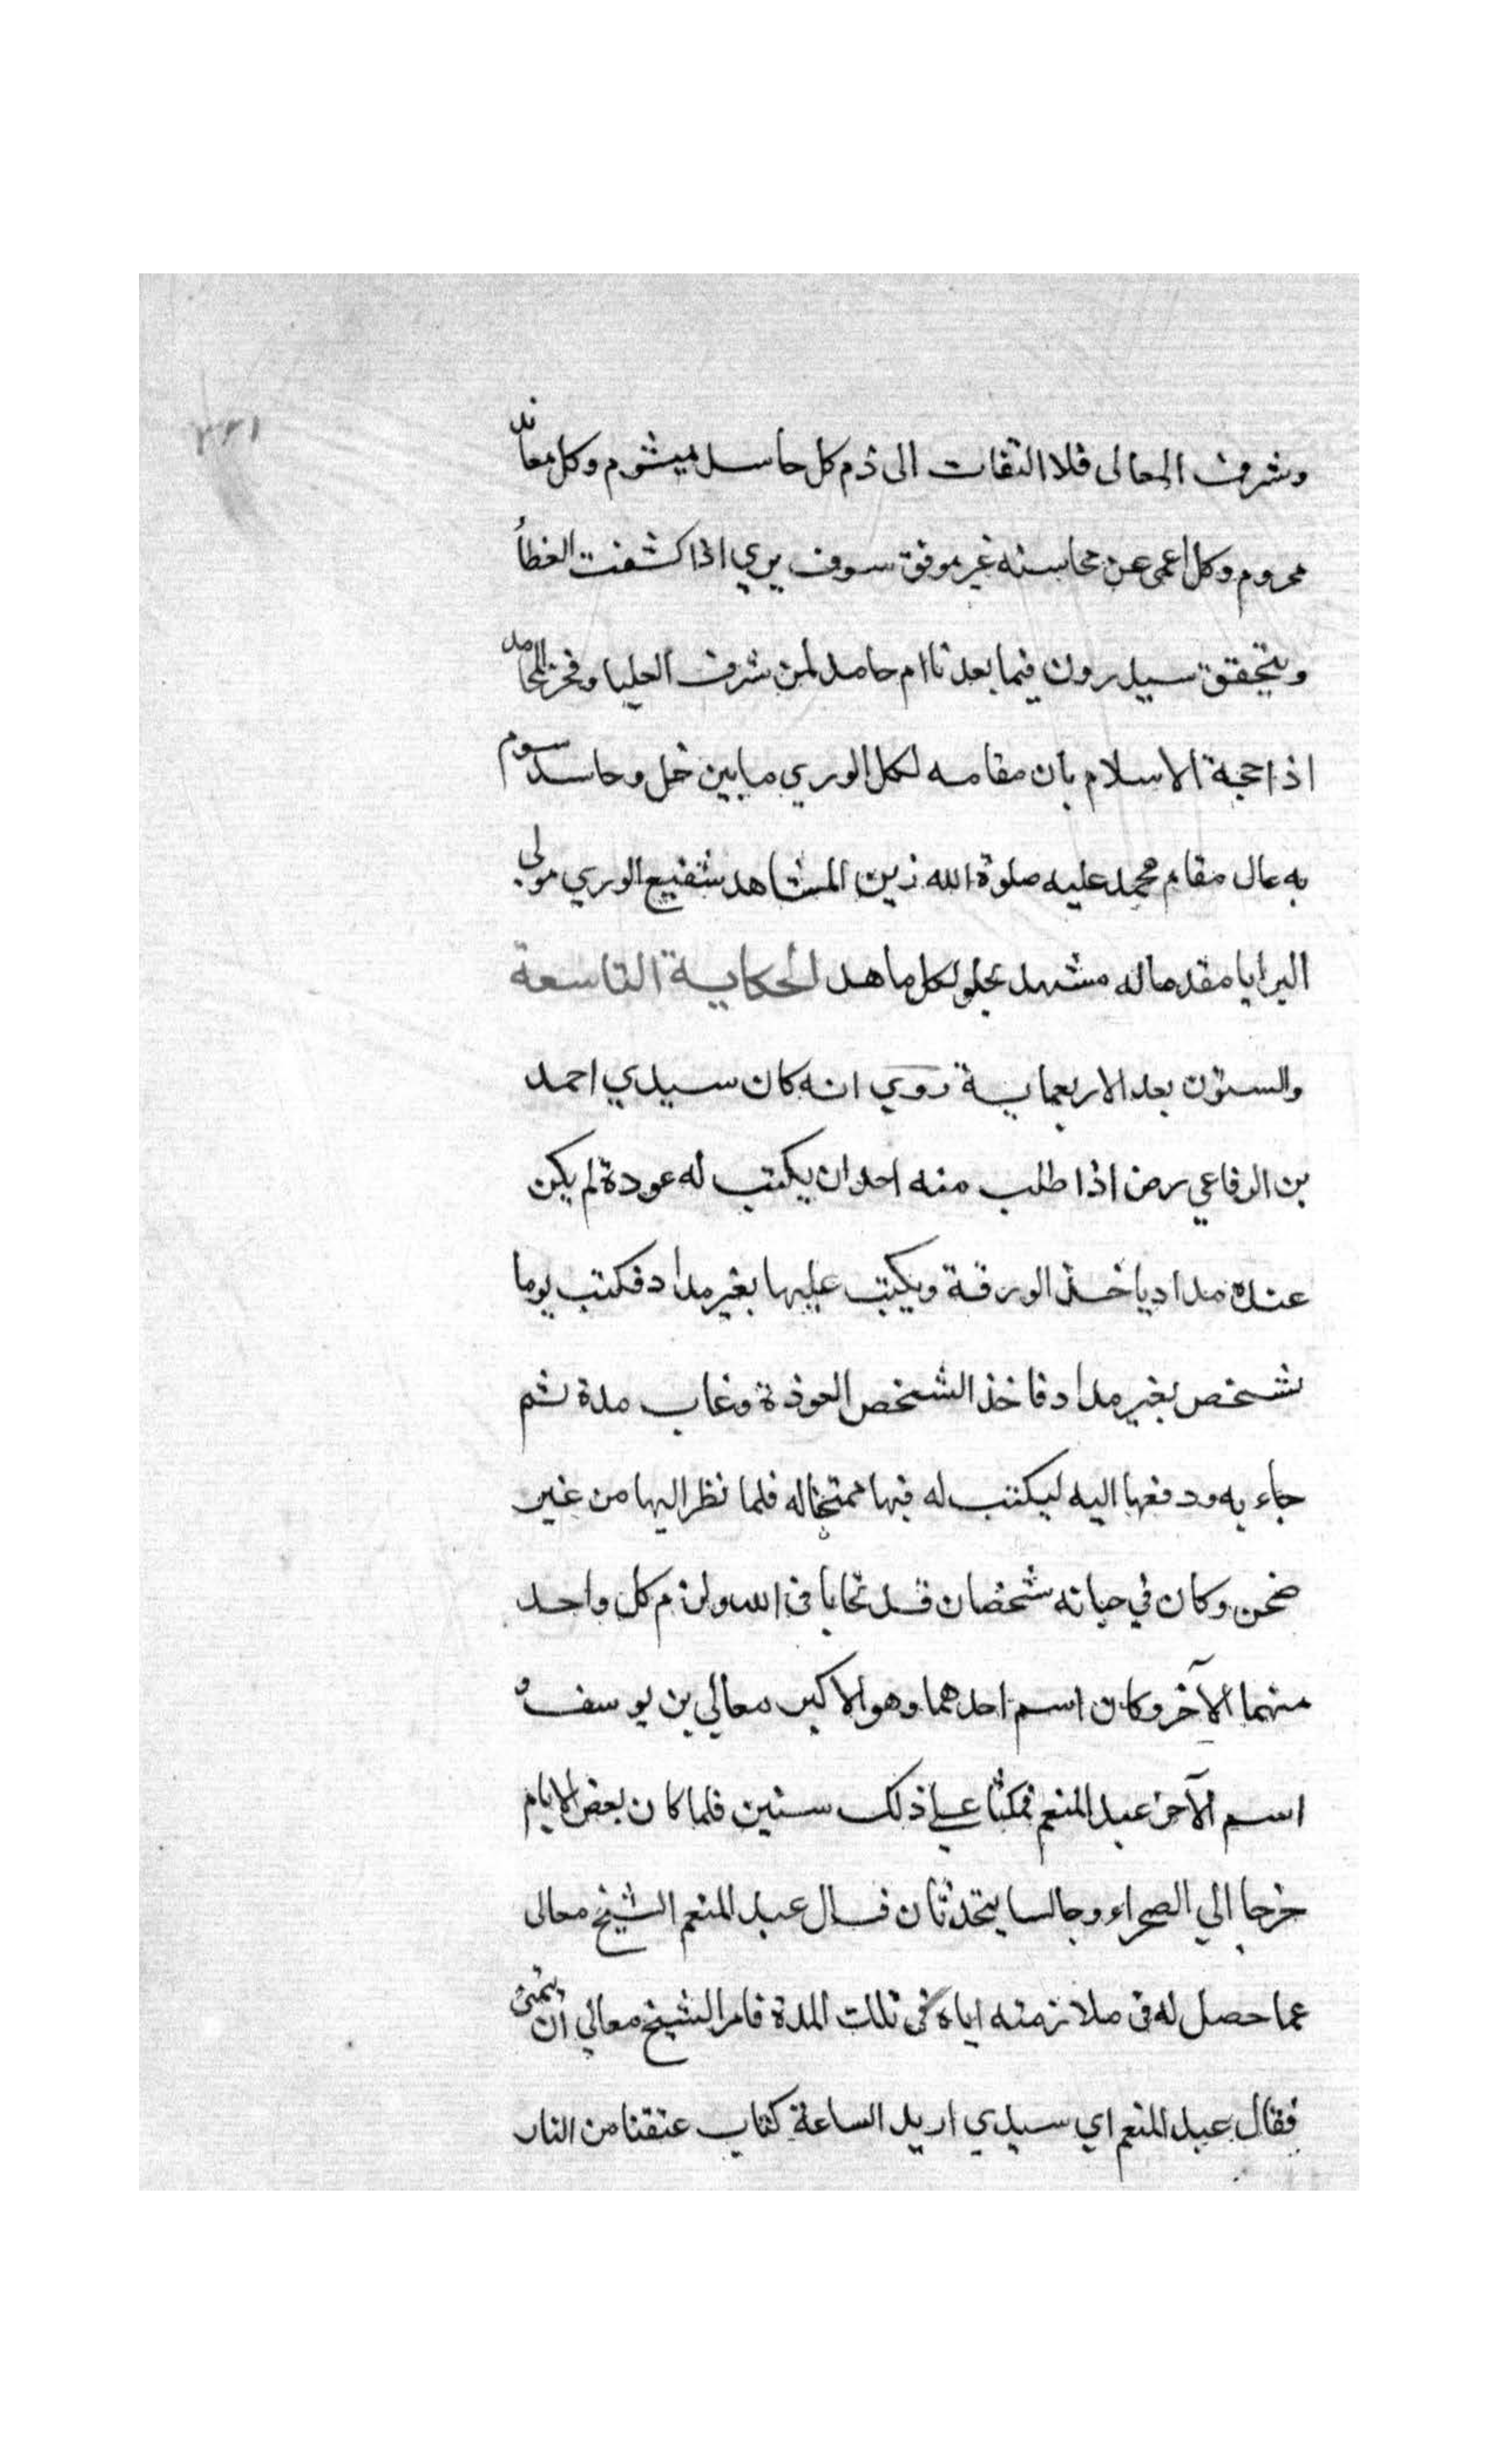 ٢٢١
وشرف المعالى فلا التفات الى ذم كل حاسد ميشوم وكل معاند
محروم وكل اعمى عن محاسنه غير موفق سوف يري اذا كشفت الغطأ
ويتحقق سيدرون فيما بعد ذا ام حامد لمن شرف العليا وفخر المحامد
اذا حجة الاسلام بان مقامه لكل الوري مابين خل وحاسد سوم
به عال مقام محمد عليه صلوة الله زين المشاهد شفيع الوري مولى
البرايا مقدما له مشهد يحلو لكل ماهد الحكاية التاسعة
والستون بعد الاربعماية روي انه كان سيدي احمد
بن الرفاعي رض اذا طلب منه احد ان يكتب له عودة لم يكن
عنده مداد ياخذ الورقة ويكتب عليها بغير مداد فكتب يوما
لشخص بغير مداد فاخذ الشخص العوذة وغاب مدة ثم
جاء به ودفعها اليه ليكتب له فيها ممتحنا له فلما نظر اليها من غير
ضحن وكان في حياته شخصان قد تحابا فى الله ولزم كل واحد
منهما الآخر وكان اسم احدهما وهو الاكبر معالي بن يوسف و
اسم الآخر عبد المنعم فمكثا علي ذلك سنين فلما كان بعض الايام
خرجا الي الصحراء وجالسا يتحدثان فسال عبد المنعم الشيخ معالى
عما حصل له فى ملازمته اياه فى تلك المدة فامر الشيخ معالي ان يتمنى
فقال عبد المنعم اي سيدي اريد الساعة كتاب عتقنا من النار